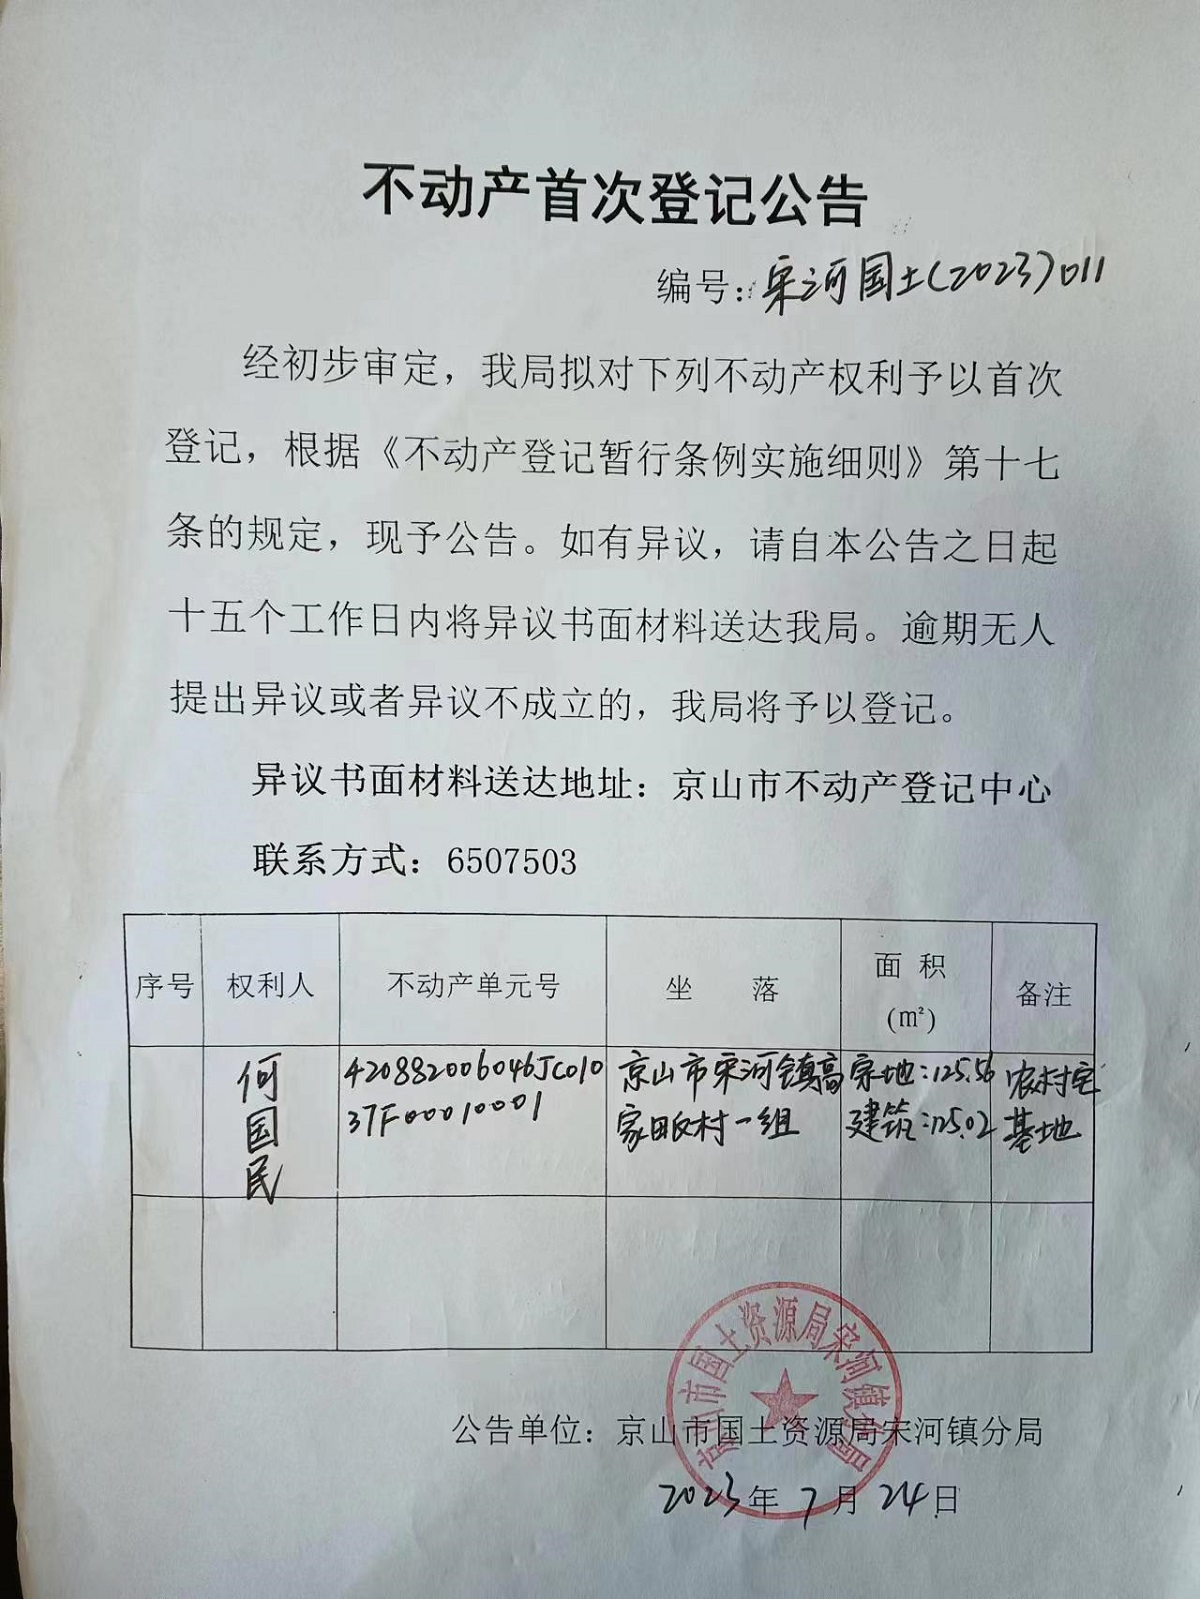 不动产首次登记公告
编号：宋河国土(2023)011
经初步审定，我局拟对下列不动产权利予以首次
登记，根据《不动产登记暂行条例实施细则》第十七
条的规定，现予公告。如有异议，请自本公告之日起
十五个工作日内将异议书面材料送达我局。逾期无人
提出异议或者异议不成立的，我局将予以登记。
异议书面材料送达地址：京山市不动产登记中心
联系方式：6507503
序号 权利人 不动产单元号 坐 落 面 积 (㎡) 备注
何国民 420882006046JC010 京山市宋河镇高 宗地：125.56 农村宅
37F00010001 家畈村一组 建筑：125.02 基地
京山市国土资源局宋河镇分局
公告单位：京山市国土资源局宋河镇分局
2023年7月24日